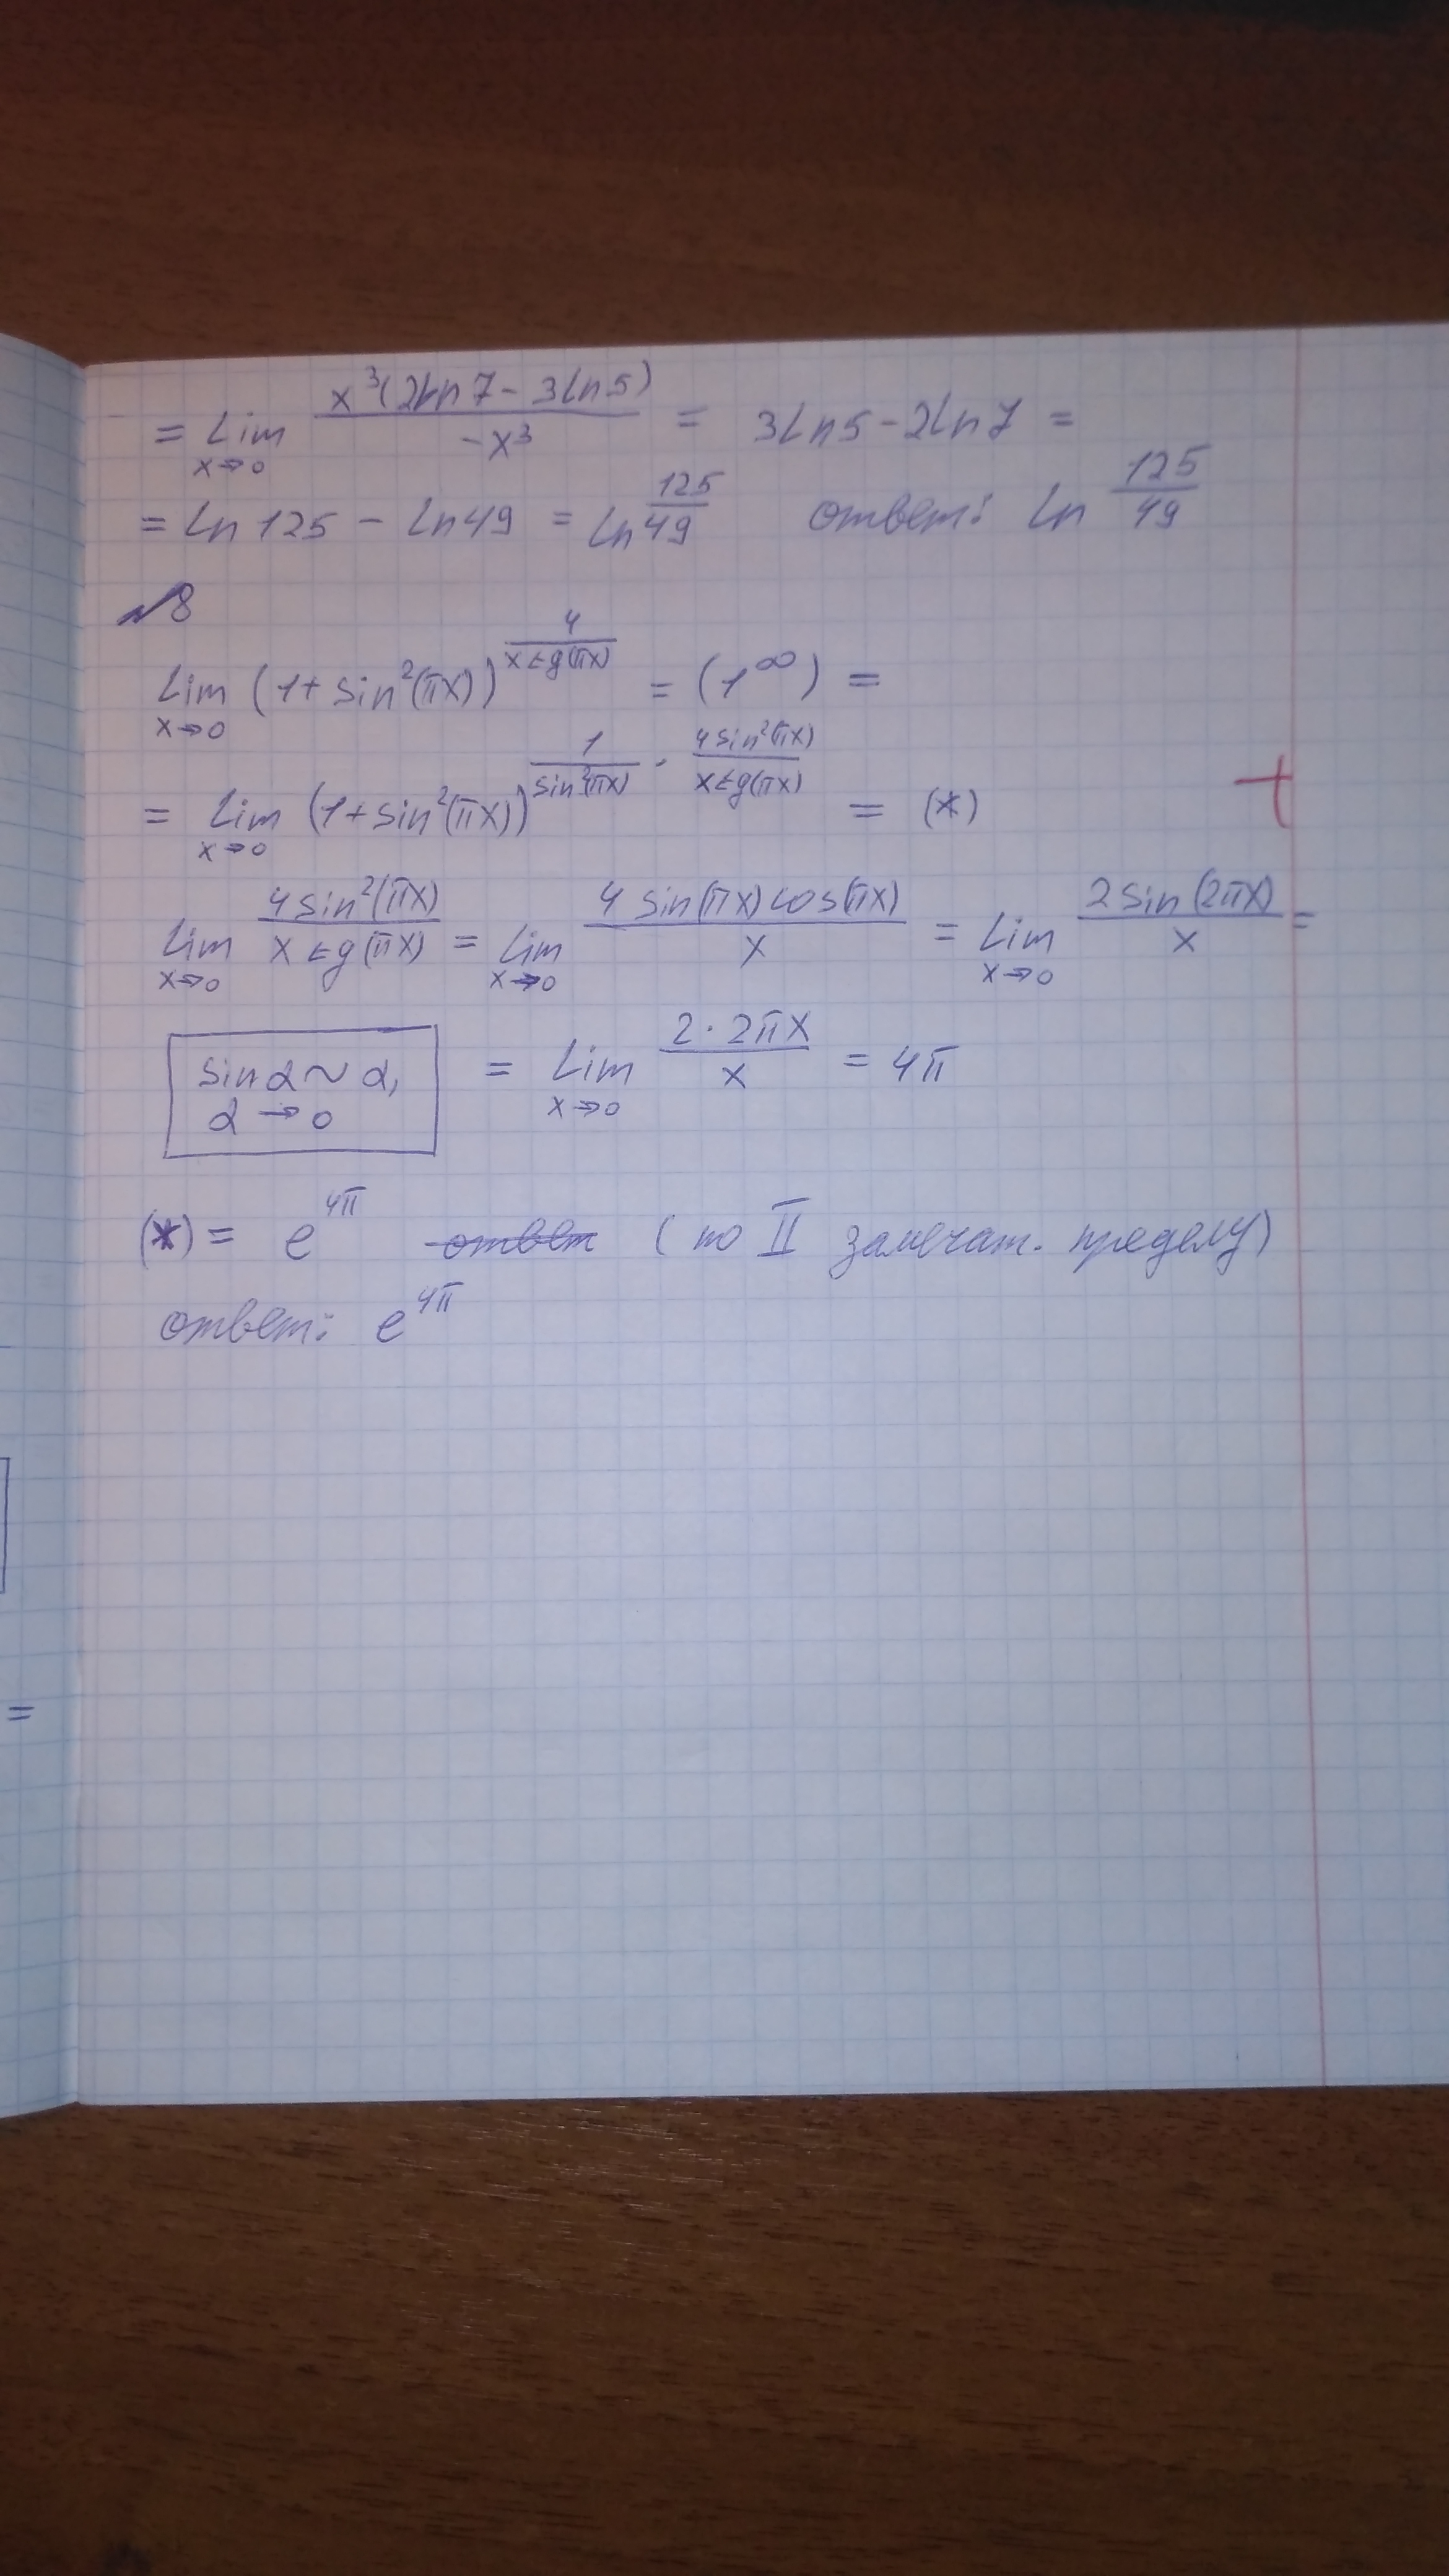 = Lim x→0 x³(2ln7 - 3ln5) / -x³ = 3Ln5 - 2Ln7 =
= Ln125 - Ln49 = Ln 125/49 ответ: Ln 125/49
№8
Lim x→0 (1 + sin²(πx))^(4 / x tg(πx)) = (1^∞) =
= Lim x→0 (1 + sin²(πx))^(1 / sin²(πx) · 4sin²(πx) / x tg(πx)) = (*)
+
Lim x→0 4sin²(πx) / x tg(πx) = Lim x→0 4 sin(πx) cos(πx) / x = Lim x→0 2 sin(2πx) / x =
sin α ~ α,
α → 0
= Lim x→0 2 · 2πx / x = 4π
(*) = e^4π ответ (по II замечат. пределу)
ответ: e^4π
=